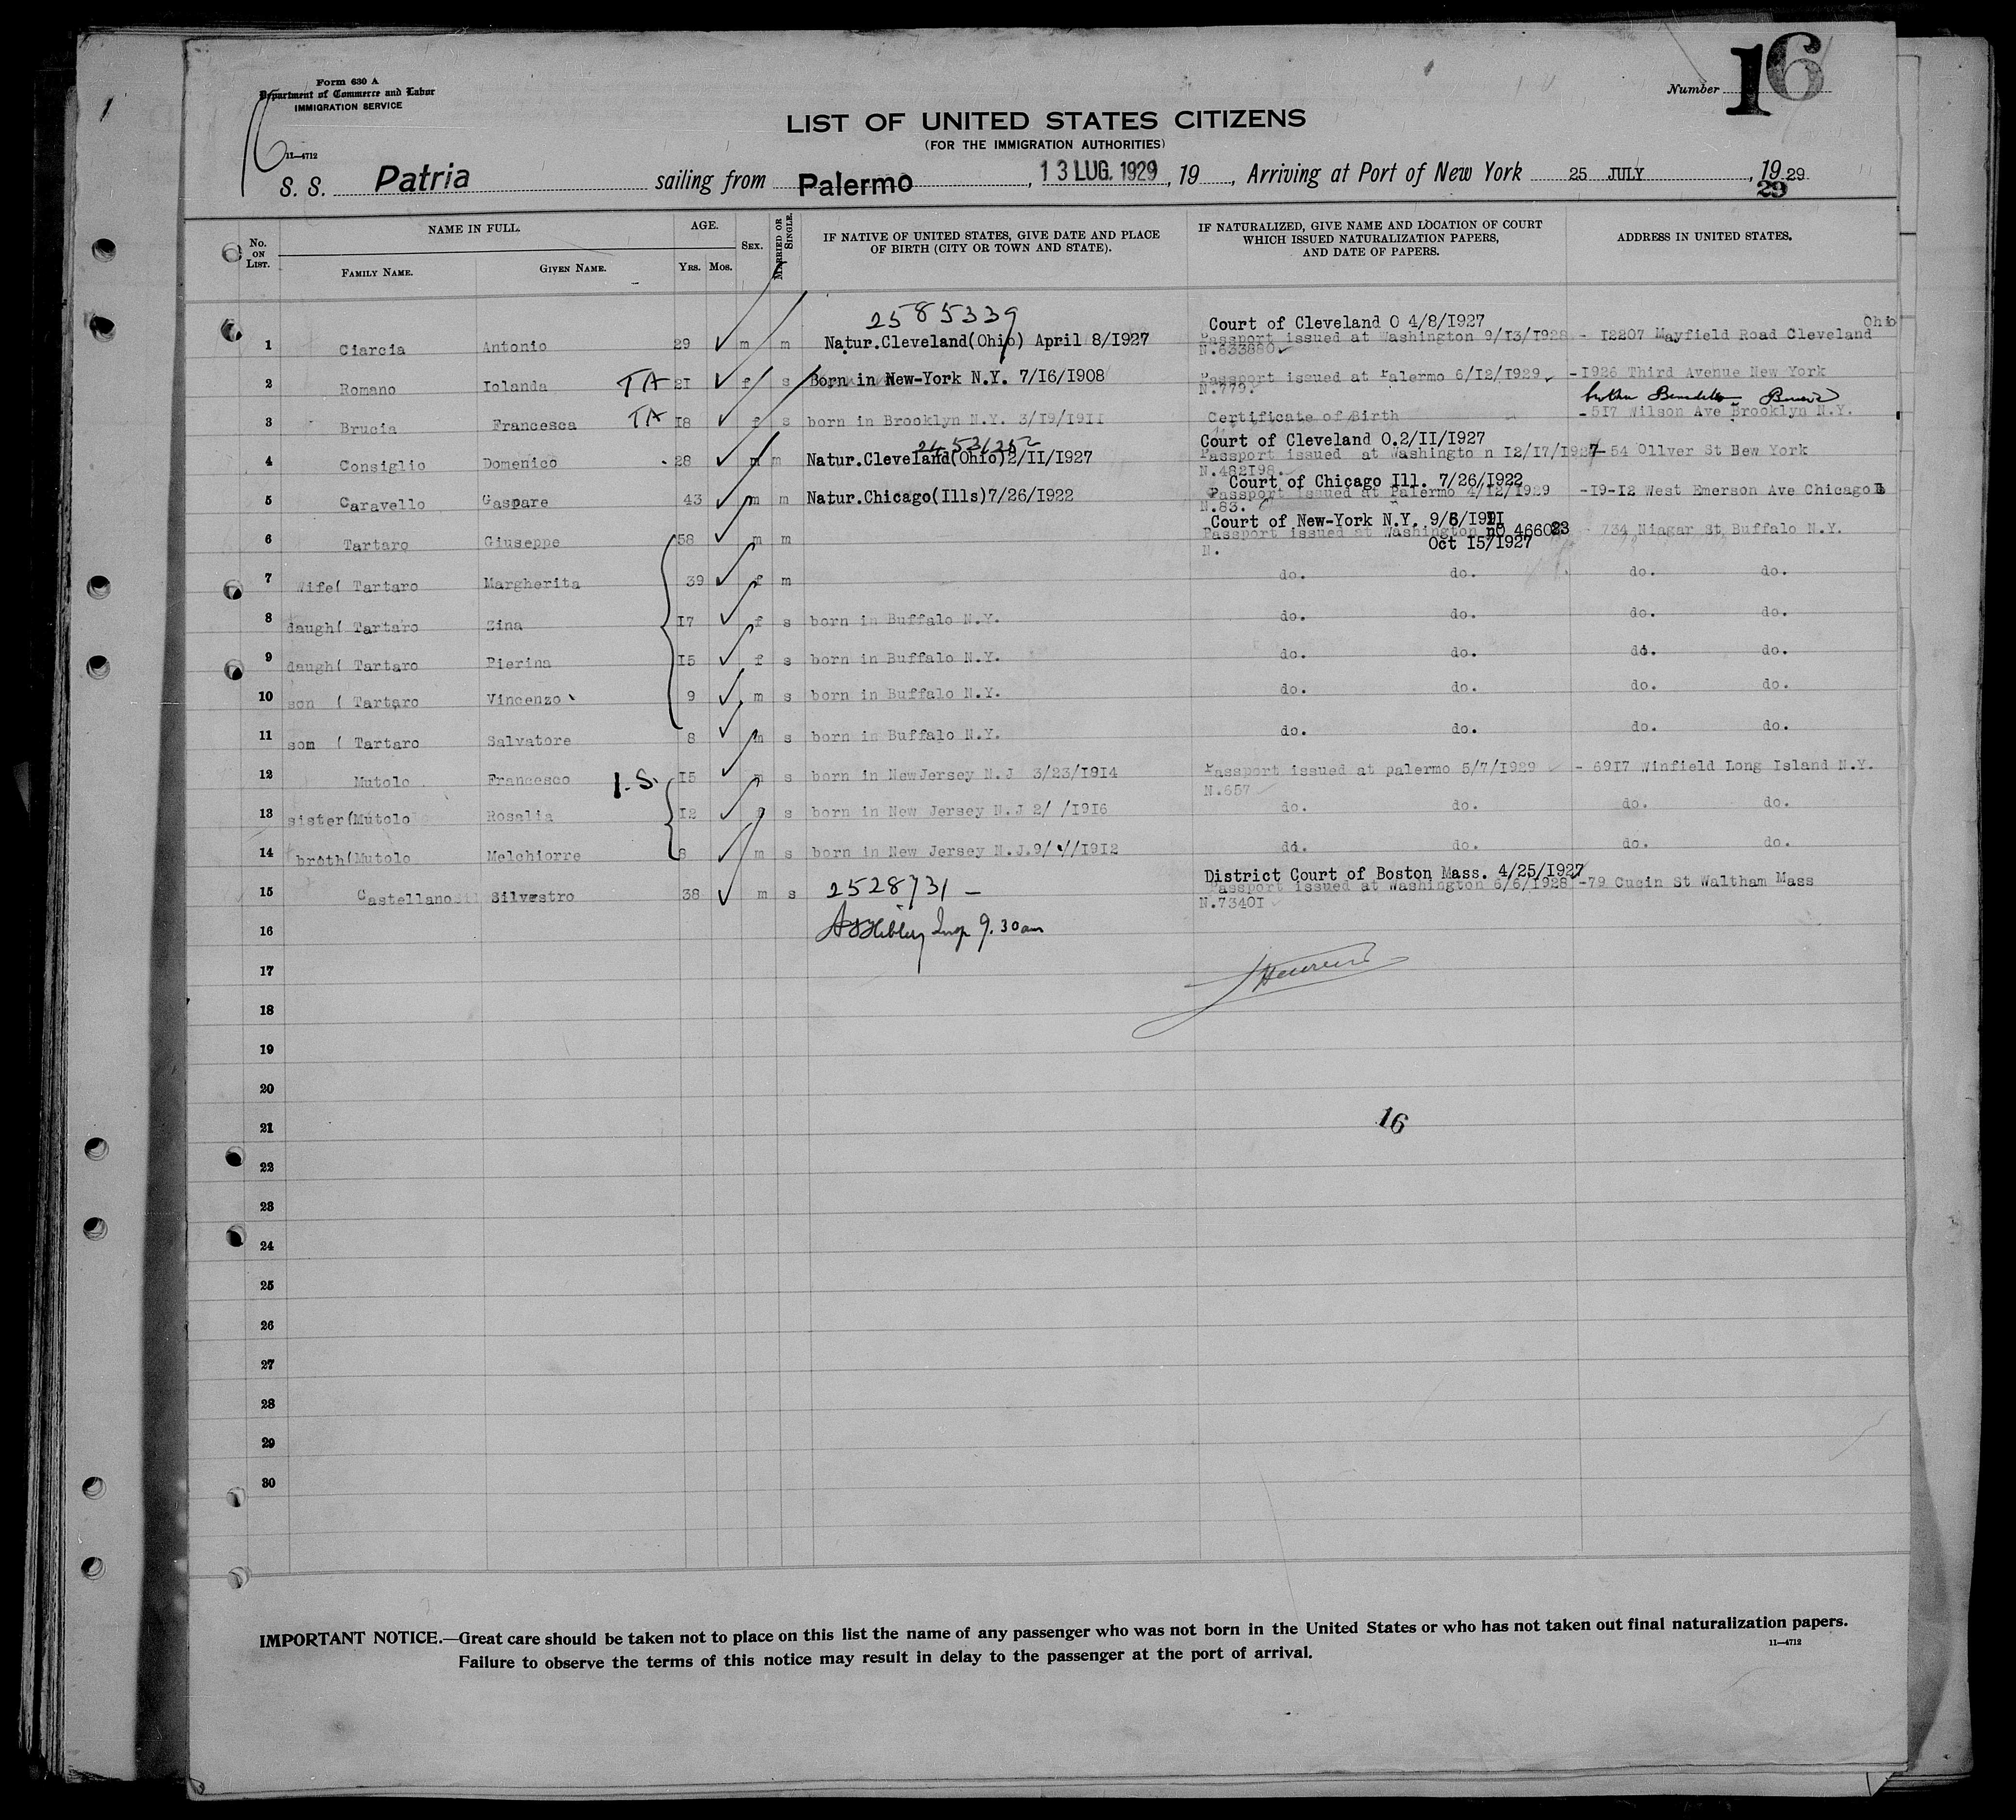 1
Form 630 A
Department of Commerce and Labor
IMMIGRATION SERVICE
16
11—4712
Number 16
LIST OF UNITED STATES CITIZENS
(FOR THE IMMIGRATION AUTHORITIES)
S. S. Patria sailing from Palermo, 13 LUG. 1929, 19, Arriving at Port of New York 25 JULY, 19 29
29
No. ON LIST.
NAME IN FULL.
FAMILY NAME. GIVEN NAME.
AGE.
YRS. MOS.
SEX.
MARRIED OR SINGLE.
IF NATIVE OF UNITED STATES, GIVE DATE AND PLACE
OF BIRTH (CITY OR TOWN AND STATE).
IF NATURALIZED, GIVE NAME AND LOCATION OF COURT
WHICH ISSUED NATURALIZATION PAPERS,
AND DATE OF PAPERS.
ADDRESS IN UNITED STATES.
2585339
Court of Cleveland O 4/8/I927
Ohio
1 Ciarcia Antonio 29 m m Natur.Cleveland(Ohio) April 8/I927 Passport issued at Washington 9/I3/I928 - I2207 Mayfield Road Cleveland
N.633880
2 Romano Iolanda TA 2I f s Born in New-York N.Y. 7/I6/I908 Passport issued at Palermo 6/I2/I929 -I926 Third Avenue New York
N.779.
3 Brucia Francesca TA I8 f s born in Brooklyn N.Y. 3/I9/I9II Certificate of Birth -5I7 Wilson Ave Brooklyn N.Y.
Court of Cleveland O.2/II/I927
4 Consiglio Domenico 28 m m Natur.Cleveland(Ohio)2/II/I927 Passport issued at Washingto n I2/I7/I927- 54 Ollver St Bew York
N.482I98.
Court of Chicago Ill. 7/26/I922
5 Caravello Gaspare 43 m m Natur.Chicago(Ills)7/26/I922 Passport issued at Palermo 4/I2/I929 -I9-I2 West Emerson Ave Chicago
N.83.
Court of New-York N.Y.
6 Tartaro Giuseppe 58 m m Passport issued at Washington 734 Niagar St Buffalo N.Y.
N. Oct I5/I927
7 wife( Tartaro Margherita 39 f m do. do. do. do.
8 daugh( Tartaro Zina I7 f s born in Buffalo N.Y. do. do. do. do.
9 daugh( Tartaro Pierina I5 f s born in Buffalo N.Y. do. do. do. do.
10 son ( Tartaro Vincenzo 9 m s born in Buffalo N.Y. do. do. do. do.
11 som ( Tartaro Salvatore 8 m s born in Buffalo N.Y. do. do. do. do.
12 Mutolo Francesco I.S. I5 m s born in NewJersey N.J 3/23/I9I4 Passport issued at palermo 5/7/I929 - 69I7 Winfield Long Island N.Y.
N.657
13 sister(Mutolo Rosalia I2 s born in New Jersey N.J 2/ /I9I6 do. do. do. do.
14 broth(Mutolo Melchiorre 8 m s born in New Jersey N.J.9/ /I9I2 do. do. do. do.
District Court of Boston Mass. 4/25/I927
15 Castellano Silvestro 38 m s 2528731 — Passport issued at Washington 6/6/I928 -79 Cucin St Waltham Mass
N.7340I
16 Insp 9.30am
17
18
19
20
21 16
22
23
24
25
26
27
28
29
30
IMPORTANT NOTICE.—Great care should be taken not to place on this list the name of any passenger who was not born in the United States or who has not taken out final naturalization papers.
Failure to observe the terms of this notice may result in delay to the passenger at the port of arrival.
11—4712